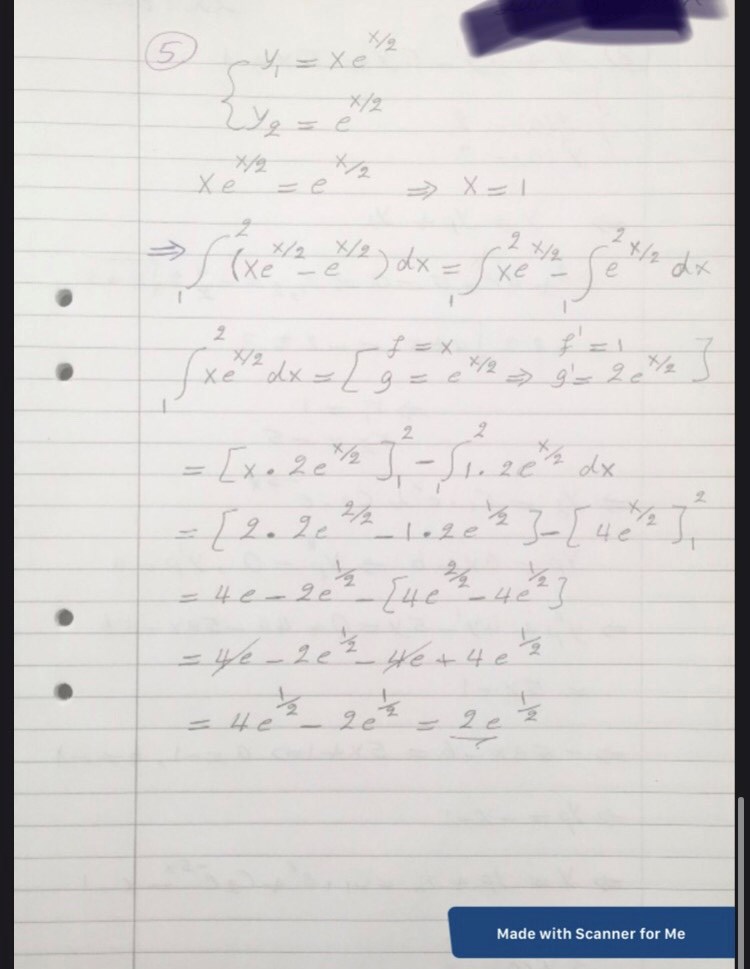 5 { y₁ = xe^{x/2}
y₂ = e^{x/2}
xe^{x/2} = e^{x/2} ⇒ x = 1
⇒ ∫₁² (xe^{x/2} - e^{x/2}) dx = ∫₁² xe^{x/2} - ∫₁² e^{x/2} dx
∫₁² xe^{x/2} dx = [ f = x f' = 1
g = e^{x/2} ⇒ g' = 2e^{x/2} ]
= [x · 2e^{x/2}]₁² - ∫₁² 1 · 2e^{x/2} dx
= [2 · 2e^{2/2} - 1 · 2e^{1/2}] - [4e^{x/2}]₁²
= 4e - 2e^{1/2} - [4e^{2/2} - 4e^{1/2}]
= 4e - 2e^{1/2} - 4e + 4e^{1/2}
= 4e^{1/2} - 2e^{1/2} = 2e^{1/2}
Made with Scanner for Me